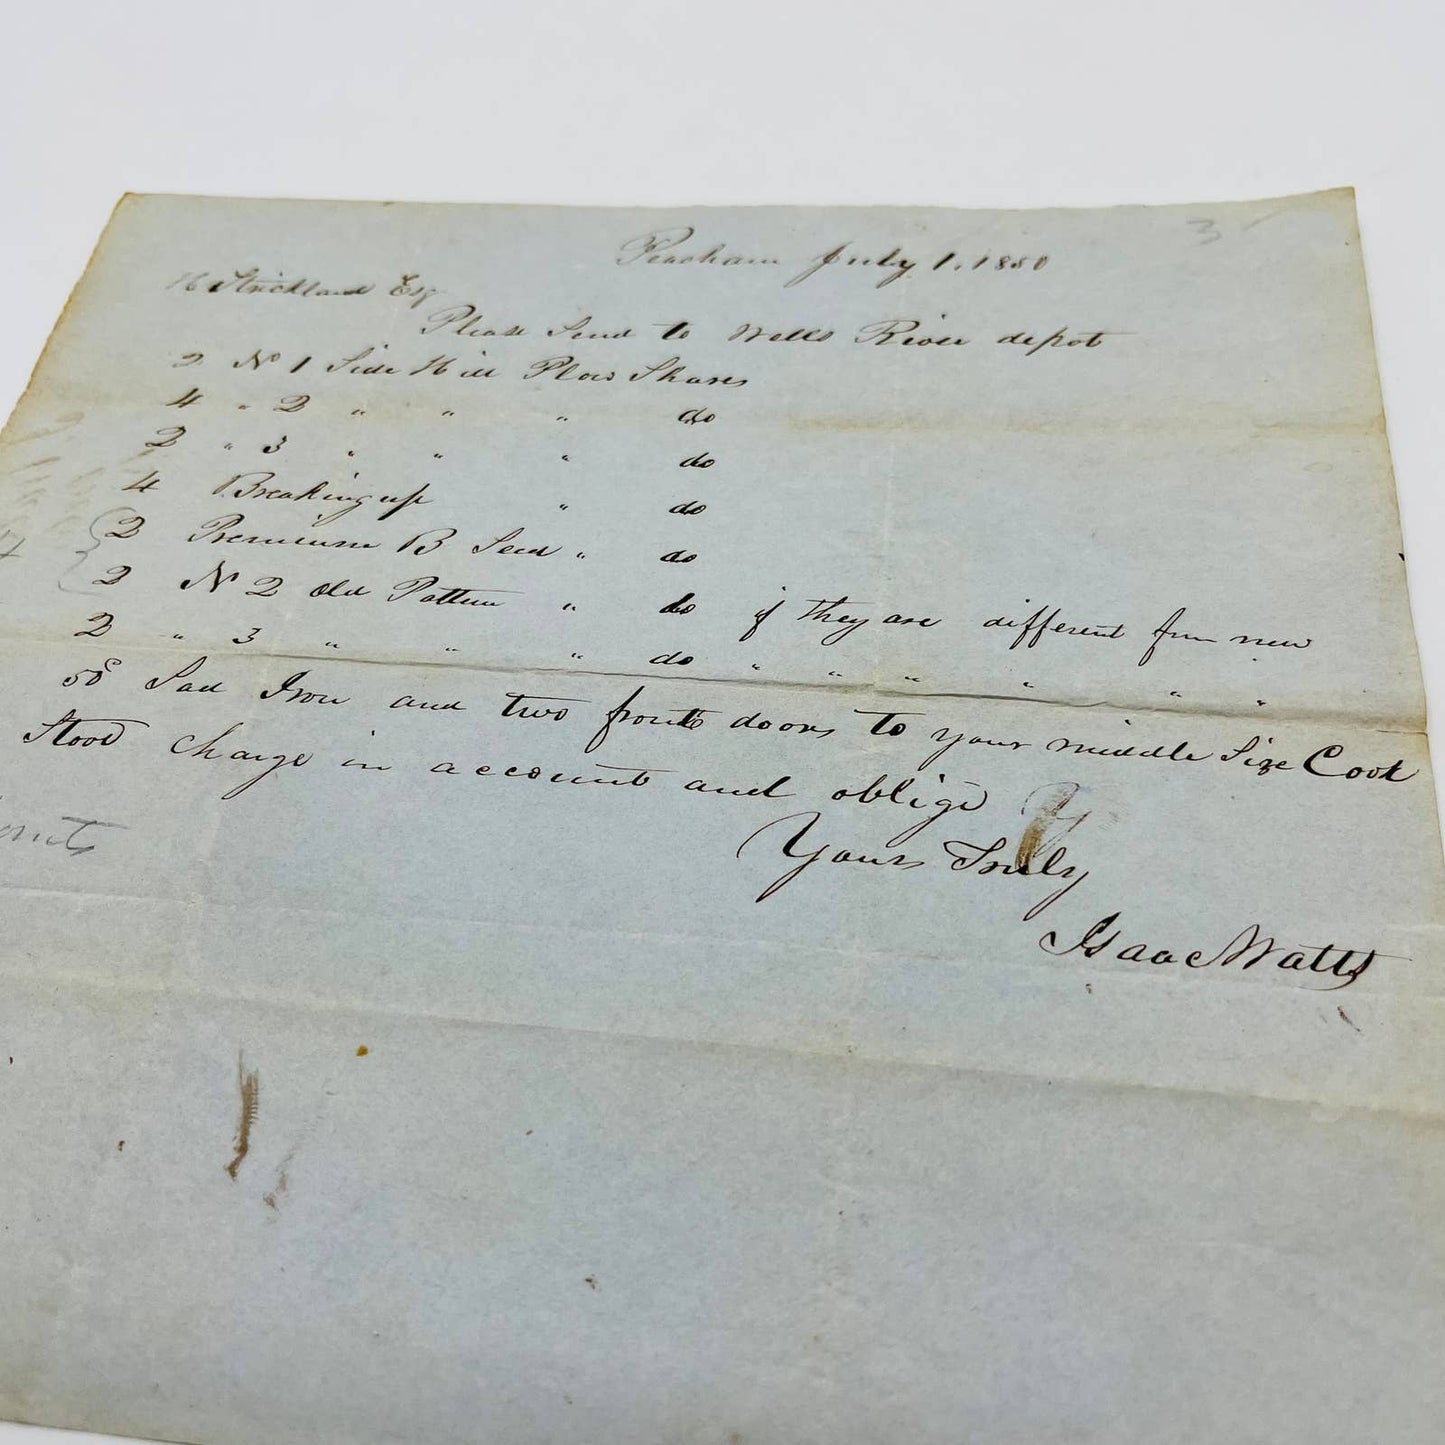 3
Peacham July 1. 1850
H Strickland Esq
Please Send to Wells River depot
2 No 1 Side Hill Plow Shares
4 " 2 " " " do
2 " 3 " " " do
4 Breaking up " do
2 Premium B Seed " do
2 No 2 Old Pattern " do if they are different from new
2 " 3 " " " do " " " " " "
Sad Iron and two fronts doors to your middle Size Cook
Stove Charge in account and oblige
Yours Truly
Isaac Watts